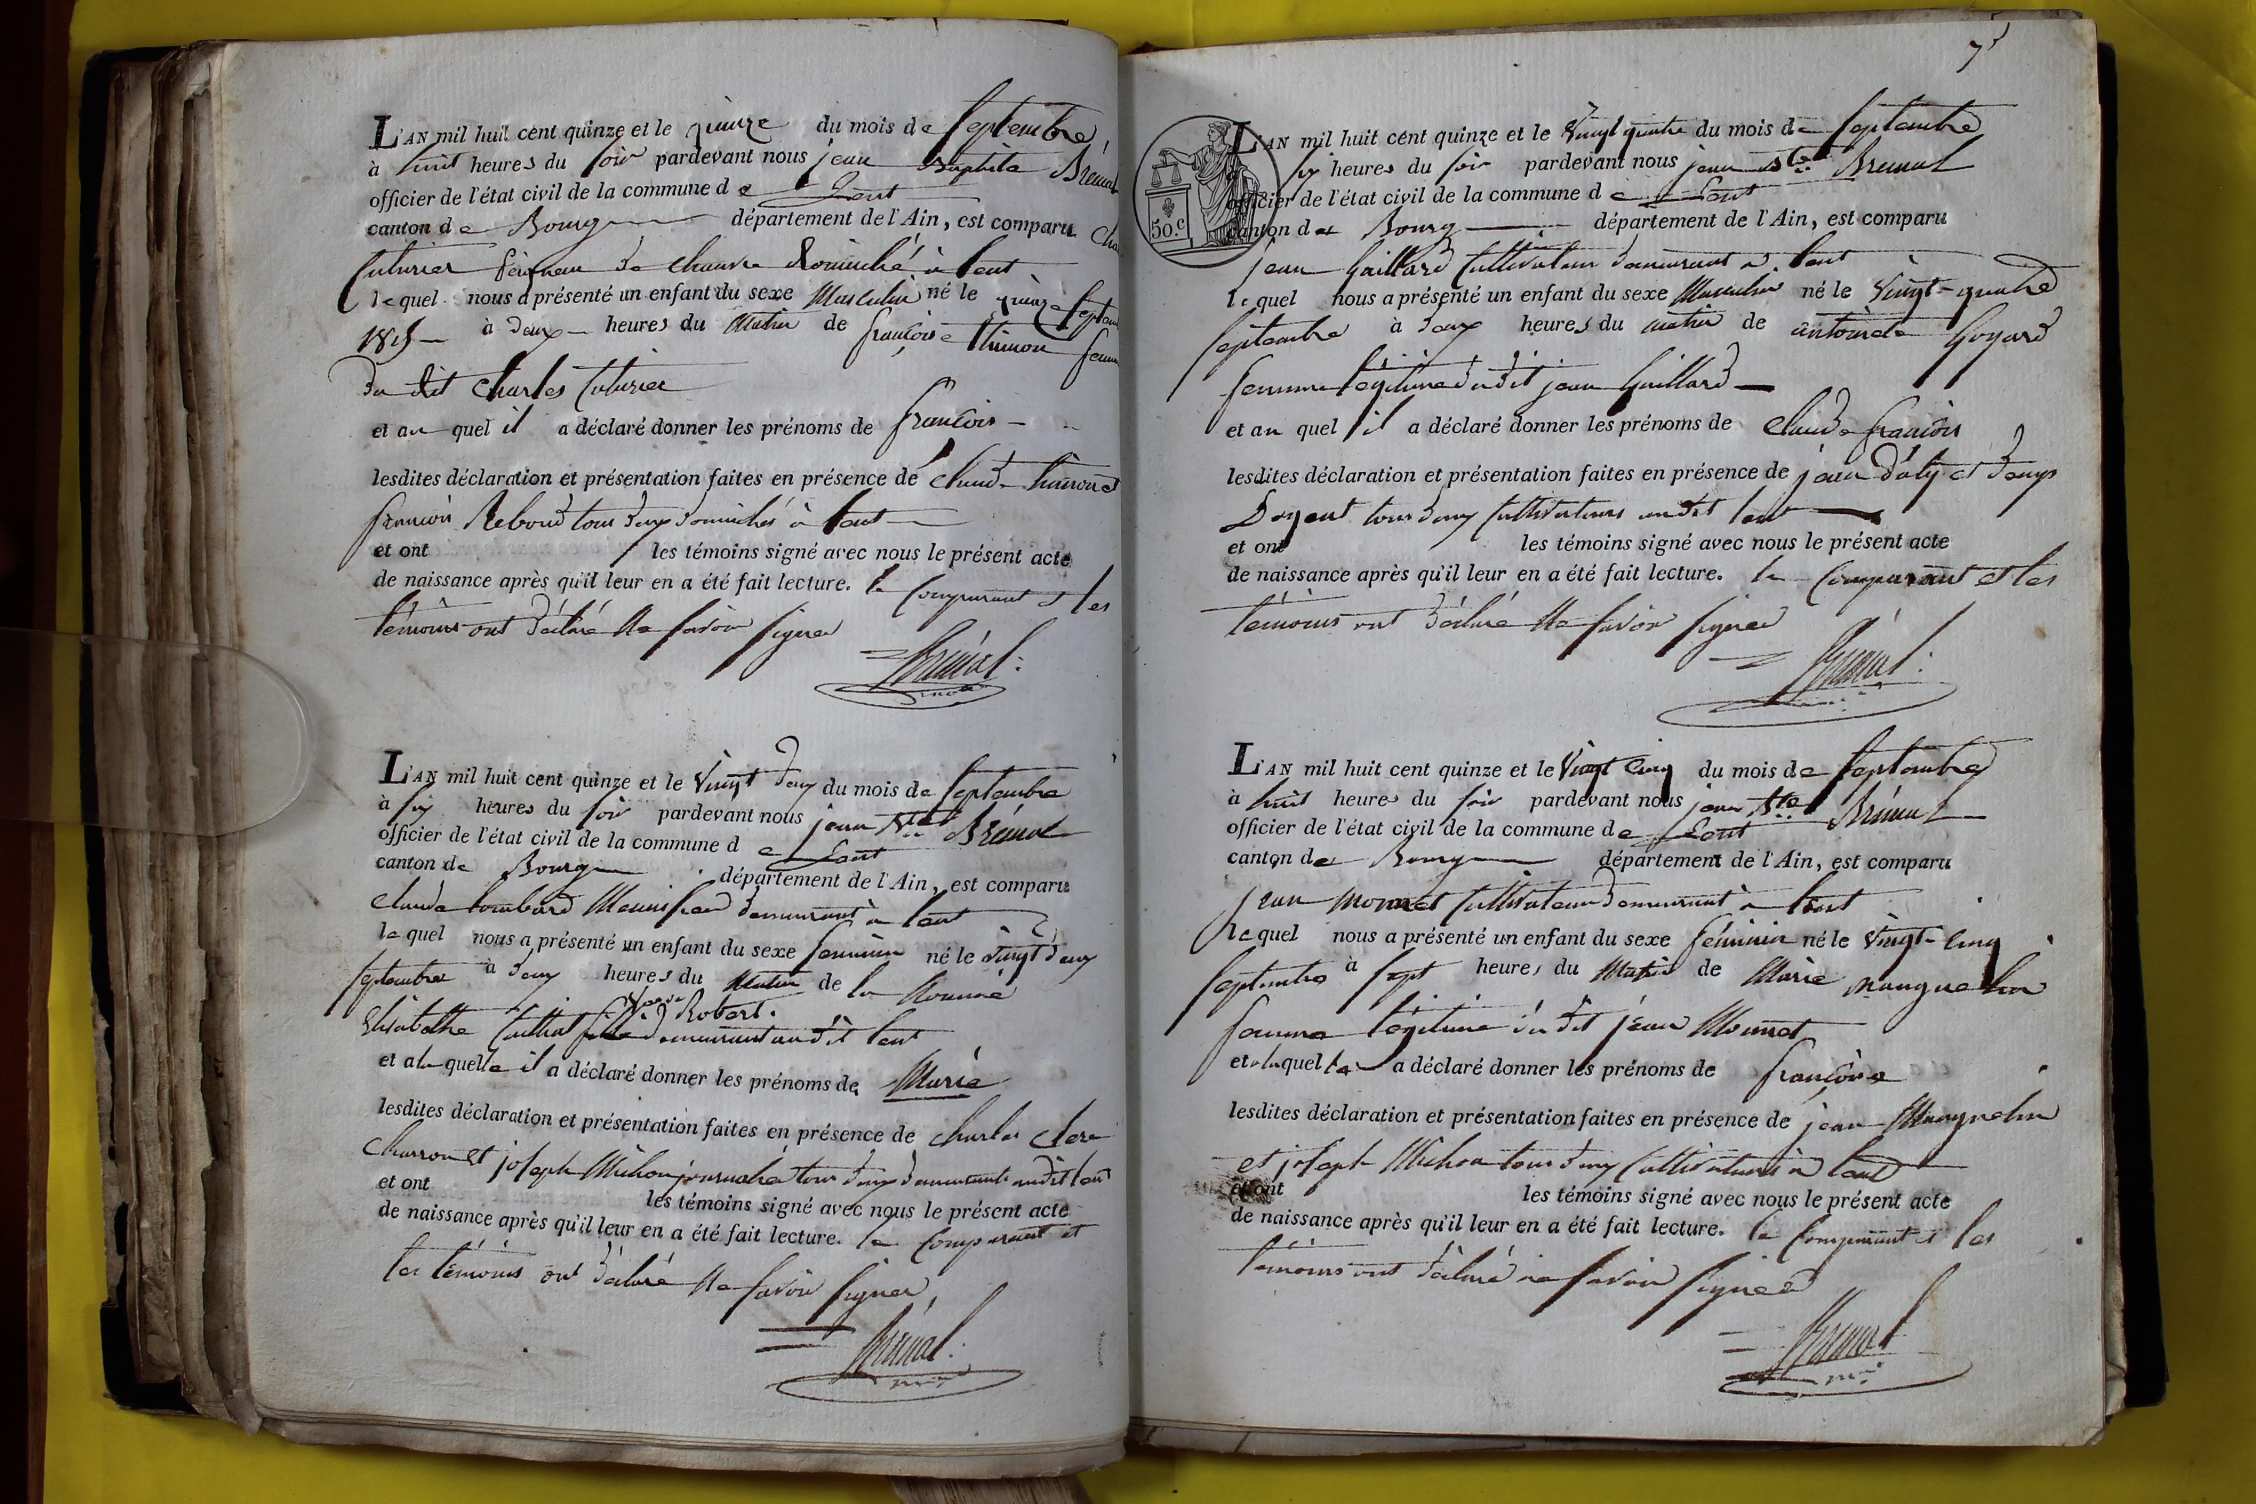 L'AN mil huit cent quinze et le quinze du mois de Septembre
à huit heures du soir pardevant nous jean Baptiste Brém
officier de l'état civil de la commune de Lent
canton de Bourg département de l'Ain, est comparu Cha
Cuturier de chanvre domicilié à Lent
lequel nous a présenté un enfant du sexe Masculin né le quinze septem
1815 à deux heures du matin de françoise femm
du dit Charles Cuturier
et au quel il a déclaré donner les prénoms de françois
lesdites déclaration et présentation faites en présence de Claude
françois Reboud tous deux domiciliés à Lent
et ont les témoins signé avec nous le présent acte
de naissance après qu'il leur en a été fait lecture. le Comparant et les
témoins ont déclaré ne savoir signer
Brémal
L'AN mil huit cent quinze et le Vingt deux du mois de Septembre
à six heures du soir pardevant nous jean Bte Brémal
officier de l'état civil de la commune de Lent
canton de Bourg département de l'Ain, est comparu
Claude Lombard demeurant à Lent
lequel nous a présenté un enfant du sexe feminin né le vingt deux
septembre à deux heures du Matin de la nommé
Veuve Robert.
Elisabethe demeurant audit Lent
et a la quelle il a déclaré donner les prénoms de Marie
lesdites déclaration et présentation faites en présence de charles Clere
Charron et joseph Michon journalié tous deux demeurants audit Lent
et ont les témoins signé avec nous le présent acte
de naissance après qu'il leur en a été fait lecture. le Comparant et
les témoins ont déclaré ne savoir signer
Brémal
50.c
L'AN mil huit cent quinze et le Vingt quatre du mois de Septembre
à six heures du soir pardevant nous jean Bte Brémal
officier de l'état civil de la commune de Lent
canton de Bourg département de l'Ain, est comparu
jean Gaillard Cultivateur demeurant à Lent
lequel nous a présenté un enfant du sexe Masculin né le Vingt-quatre
septembre à deux heures du matin de antoinete Goyard
femme légitime du dit jean Gaillard
et au quel il a déclaré donner les prénoms de Claude françois
lesdites déclaration et présentation faites en présence de jean et denys
Doyent tous deux Cultivateurs audit Lent
et ont les témoins signé avec nous le présent acte
de naissance après qu'il leur en a été fait lecture. le Comparant et les
témoins ont déclaré ne savoir signer
Brémal
L'AN mil huit cent quinze et le Vingt cinq du mois de Septembre
à huit heures du soir pardevant nous jean Bte Brémal
officier de l'état civil de la commune de Lent
canton de Bourg département de l'Ain, est comparu
jean monnet Cultivateur demeurant à Lent
lequel nous a présenté un enfant du sexe féminin né le Vingt-cinq
septembre à sept heures du Matin de Marie Manguelin
femme légitime du dit jean Monnet
et a la quelle a déclaré donner les prénoms de françoise
lesdites déclaration et présentation faites en présence de jean Manguelin
et joseph Michon tous deux Cultivateurs à Lent
et ont les témoins signé avec nous le présent acte
de naissance après qu'il leur en a été fait lecture. le Comparant et les
témoins ont déclaré ne savoir signer
Brémal